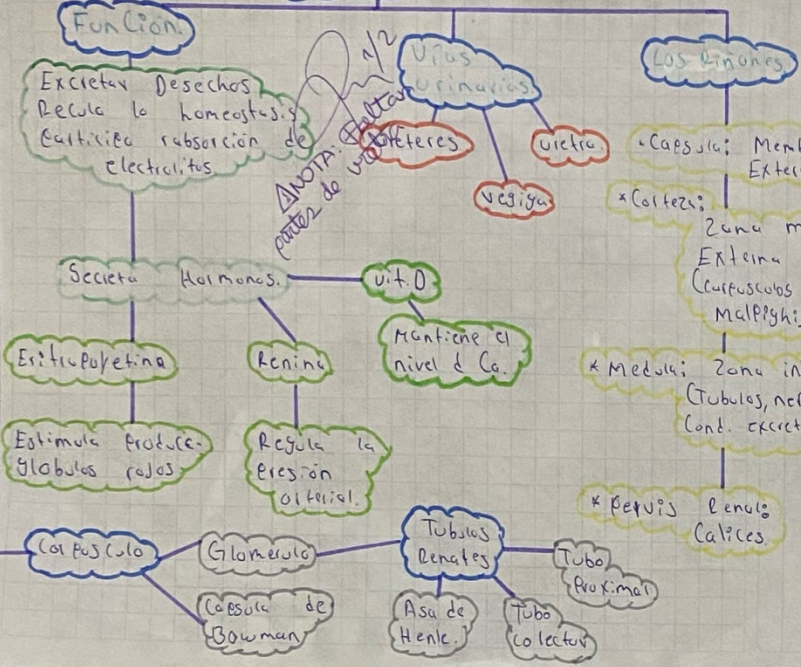 Función.
Excretar Desechos
Recula lo homeostasis
rabsorción de
electralitos
1/2
Vias
urinarias
NOTA: Faltan
partes de
Ureteres
uretra
vegiga
Los Riñones
*Caesula: Mem
Exter
*Corteza:
Zona m
Externa
(Curpusculos
Malpighi
*Medula: Zona in
(Tubulos, nef
Cond. excret
*Pelvis Renal:
Calices.
Secreta Hormonas.
vit. D
Mantiene el
nivel d Ca.
Eritropoyetina
Renina
Estimula produce.
glóbulos rojos
Regula la
presión
arterial.
Corpusculo
Glomerulo
Capsula de
Bowman
Tubulos
Renales
Tubo
Proximal
Asa de
Henle.
Tubo
colector